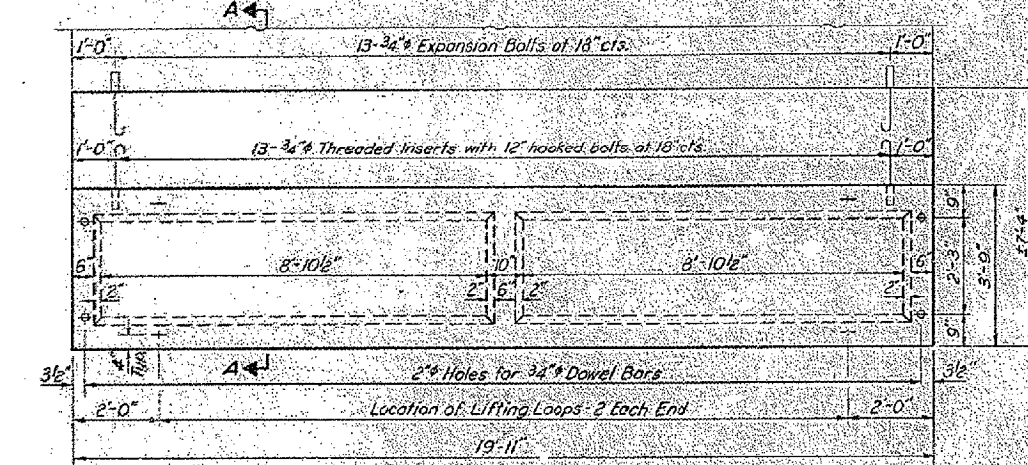 A
1'-0" 13-3/4"φ Expansion Bolts at 18"cts. 1'-0"
1'-0" 13-3/4"φ Threaded Inserts with 12" hooked bolts at 18"cts. 1'-0"
9"
6" 8'-10 1/2" 10" 8'-10 1/2" 6" 2'-3" 3'-9"
2" 2" 6" 2" 2"
9"
4" Typ.
A
3 1/2" 2"φ Holes for 3/4"φ Dowel Bars 3 1/2"
2'-0" Location of Lifting Loops - 2 Each End 2'-0"
19'-11"